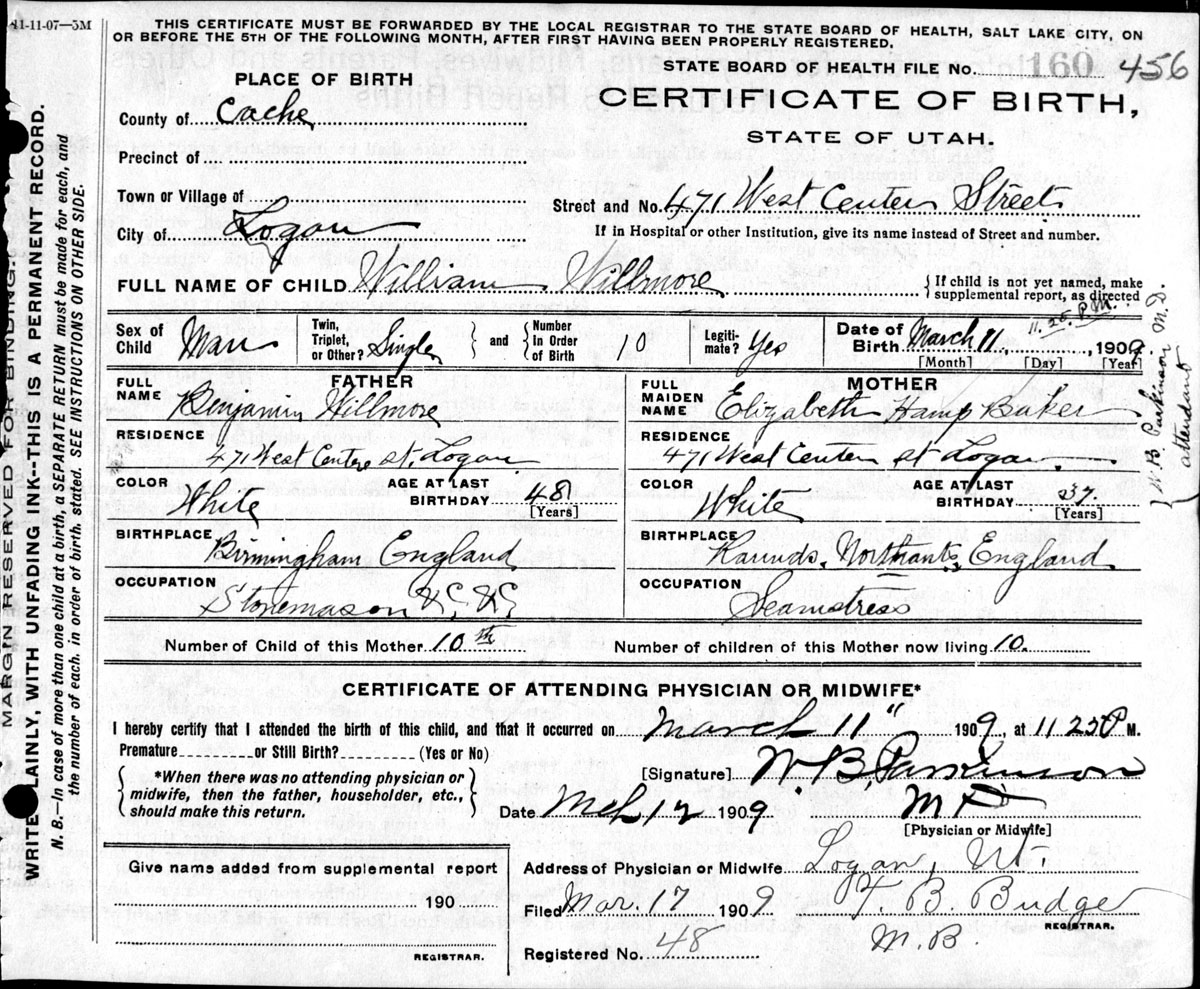 11-11-07—3M
THIS CERTIFICATE MUST BE FORWARDED BY THE LOCAL REGISTRAR TO THE STATE BOARD OF HEALTH, SALT LAKE CITY, ON
OR BEFORE THE 5TH OF THE FOLLOWING MONTH, AFTER FIRST HAVING BEEN PROPERLY REGISTERED.
PLACE OF BIRTH
STATE BOARD OF HEALTH FILE No. 160 456
CERTIFICATE OF BIRTH,
STATE OF UTAH.
County of Cache
Precinct of
Town or Village of
City of Logan
Street and No. 471 West Center Street
If in Hospital or other Institution, give its name instead of Street and number.
FULL NAME OF CHILD William Willmore
{If child is not yet named, make
supplemental report, as directed
Sex of Child Man
Twin, Triplet, or Other? Single
and
Number In Order of Birth 10
Legiti-mate? Yes
11.25 P.M.
Date of Birth March 11, 1909
[Month] [Day] [Year]
W. B. Parkinson M.D.
attendant
FATHER
FULL NAME Benjamin Willmore
RESIDENCE 471 West Centre St. Logan
COLOR White
AGE AT LAST BIRTHDAY 48 [Years]
BIRTHPLACE Birmingham England
OCCUPATION Stonemason &c, &c
MOTHER
FULL MAIDEN NAME Elizabeth Hamp Baker
RESIDENCE 471 West Center St Logan
COLOR White
AGE AT LAST BIRTHDAY 37. [Years]
BIRTHPLACE Raunds, Northants, England
OCCUPATION Seamstress
Number of Child of this Mother 10th
Number of children of this Mother now living 10.
CERTIFICATE OF ATTENDING PHYSICIAN OR MIDWIFE*
I hereby certify that I attended the birth of this child, and that it occurred on March 11" 1909, at 11 25 P M.
Premature or Still Birth? (Yes or No)
{*When there was no attending physician or
midwife, then the father, householder, etc.,
should make this return.}
[Signature] W B Parkinson
M D
Date Mch 12 1909
[Physician or Midwife]
Give name added from supplemental report
190
REGISTRAR.
Address of Physician or Midwife Logan, Ut.
Filed Mar. 17 1909
B. Budge
M.B.
REGISTRAR.
Registered No. 48
MARGIN RESERVED FOR BINDING
WRITE PLAINLY, WITH UNFADING INK--THIS IS A PERMANENT RECORD.
N. B.—In case of more than one child at a birth, a SEPARATE RETURN must be made for each, and
the number of each, in order of birth, stated. SEE INSTRUCTIONS ON OTHER SIDE.